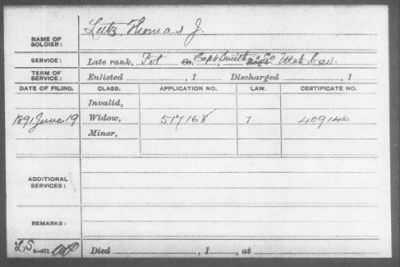 NAME OF SOLDIER: Lutz, Thomas J.
SERVICE: Late rank, Pvt Capt Smith's Co Utah Cav.
TERM OF SERVICE: Enlisted , 1 Discharged , 1
DATE OF FILING. CLASS. APPLICATION NO. LAW. CERTIFICATE NO.
Invalid,
1891 June 19 Widow, 517168 409146
Minor,
ADDITIONAL SERVICES:
REMARKS:
LS Died , 1 , at